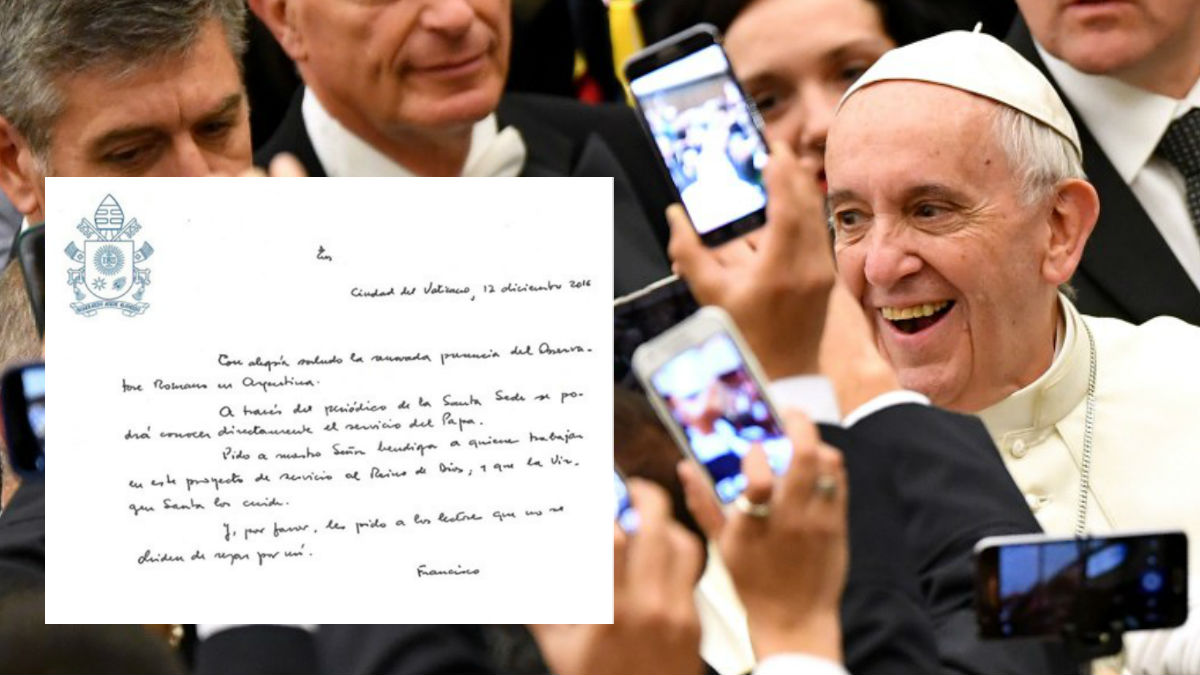 Ciudad del Vaticano, 12 diciembre 2016
Con alegría saludo la renovada presencia del Osserva-
tore Romano en Argentina.
A través del periódico de la Santa Sede se po-
drá conocer directamente el servicio del Papa.
Pido a nuestro Señor bendiga a quienes trabajan
en este proyecto de servicio al Reino de Dios, y que la Vir-
gen Santa los cuide.
Y, por favor, les pido a los lectores que no se
olviden de rezar por mí.
Francisco